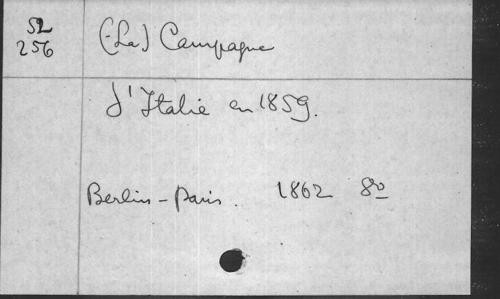 52
256
(-La) Campagne
d'Italie en 1859.
Berlin-Paris. 1862 8o